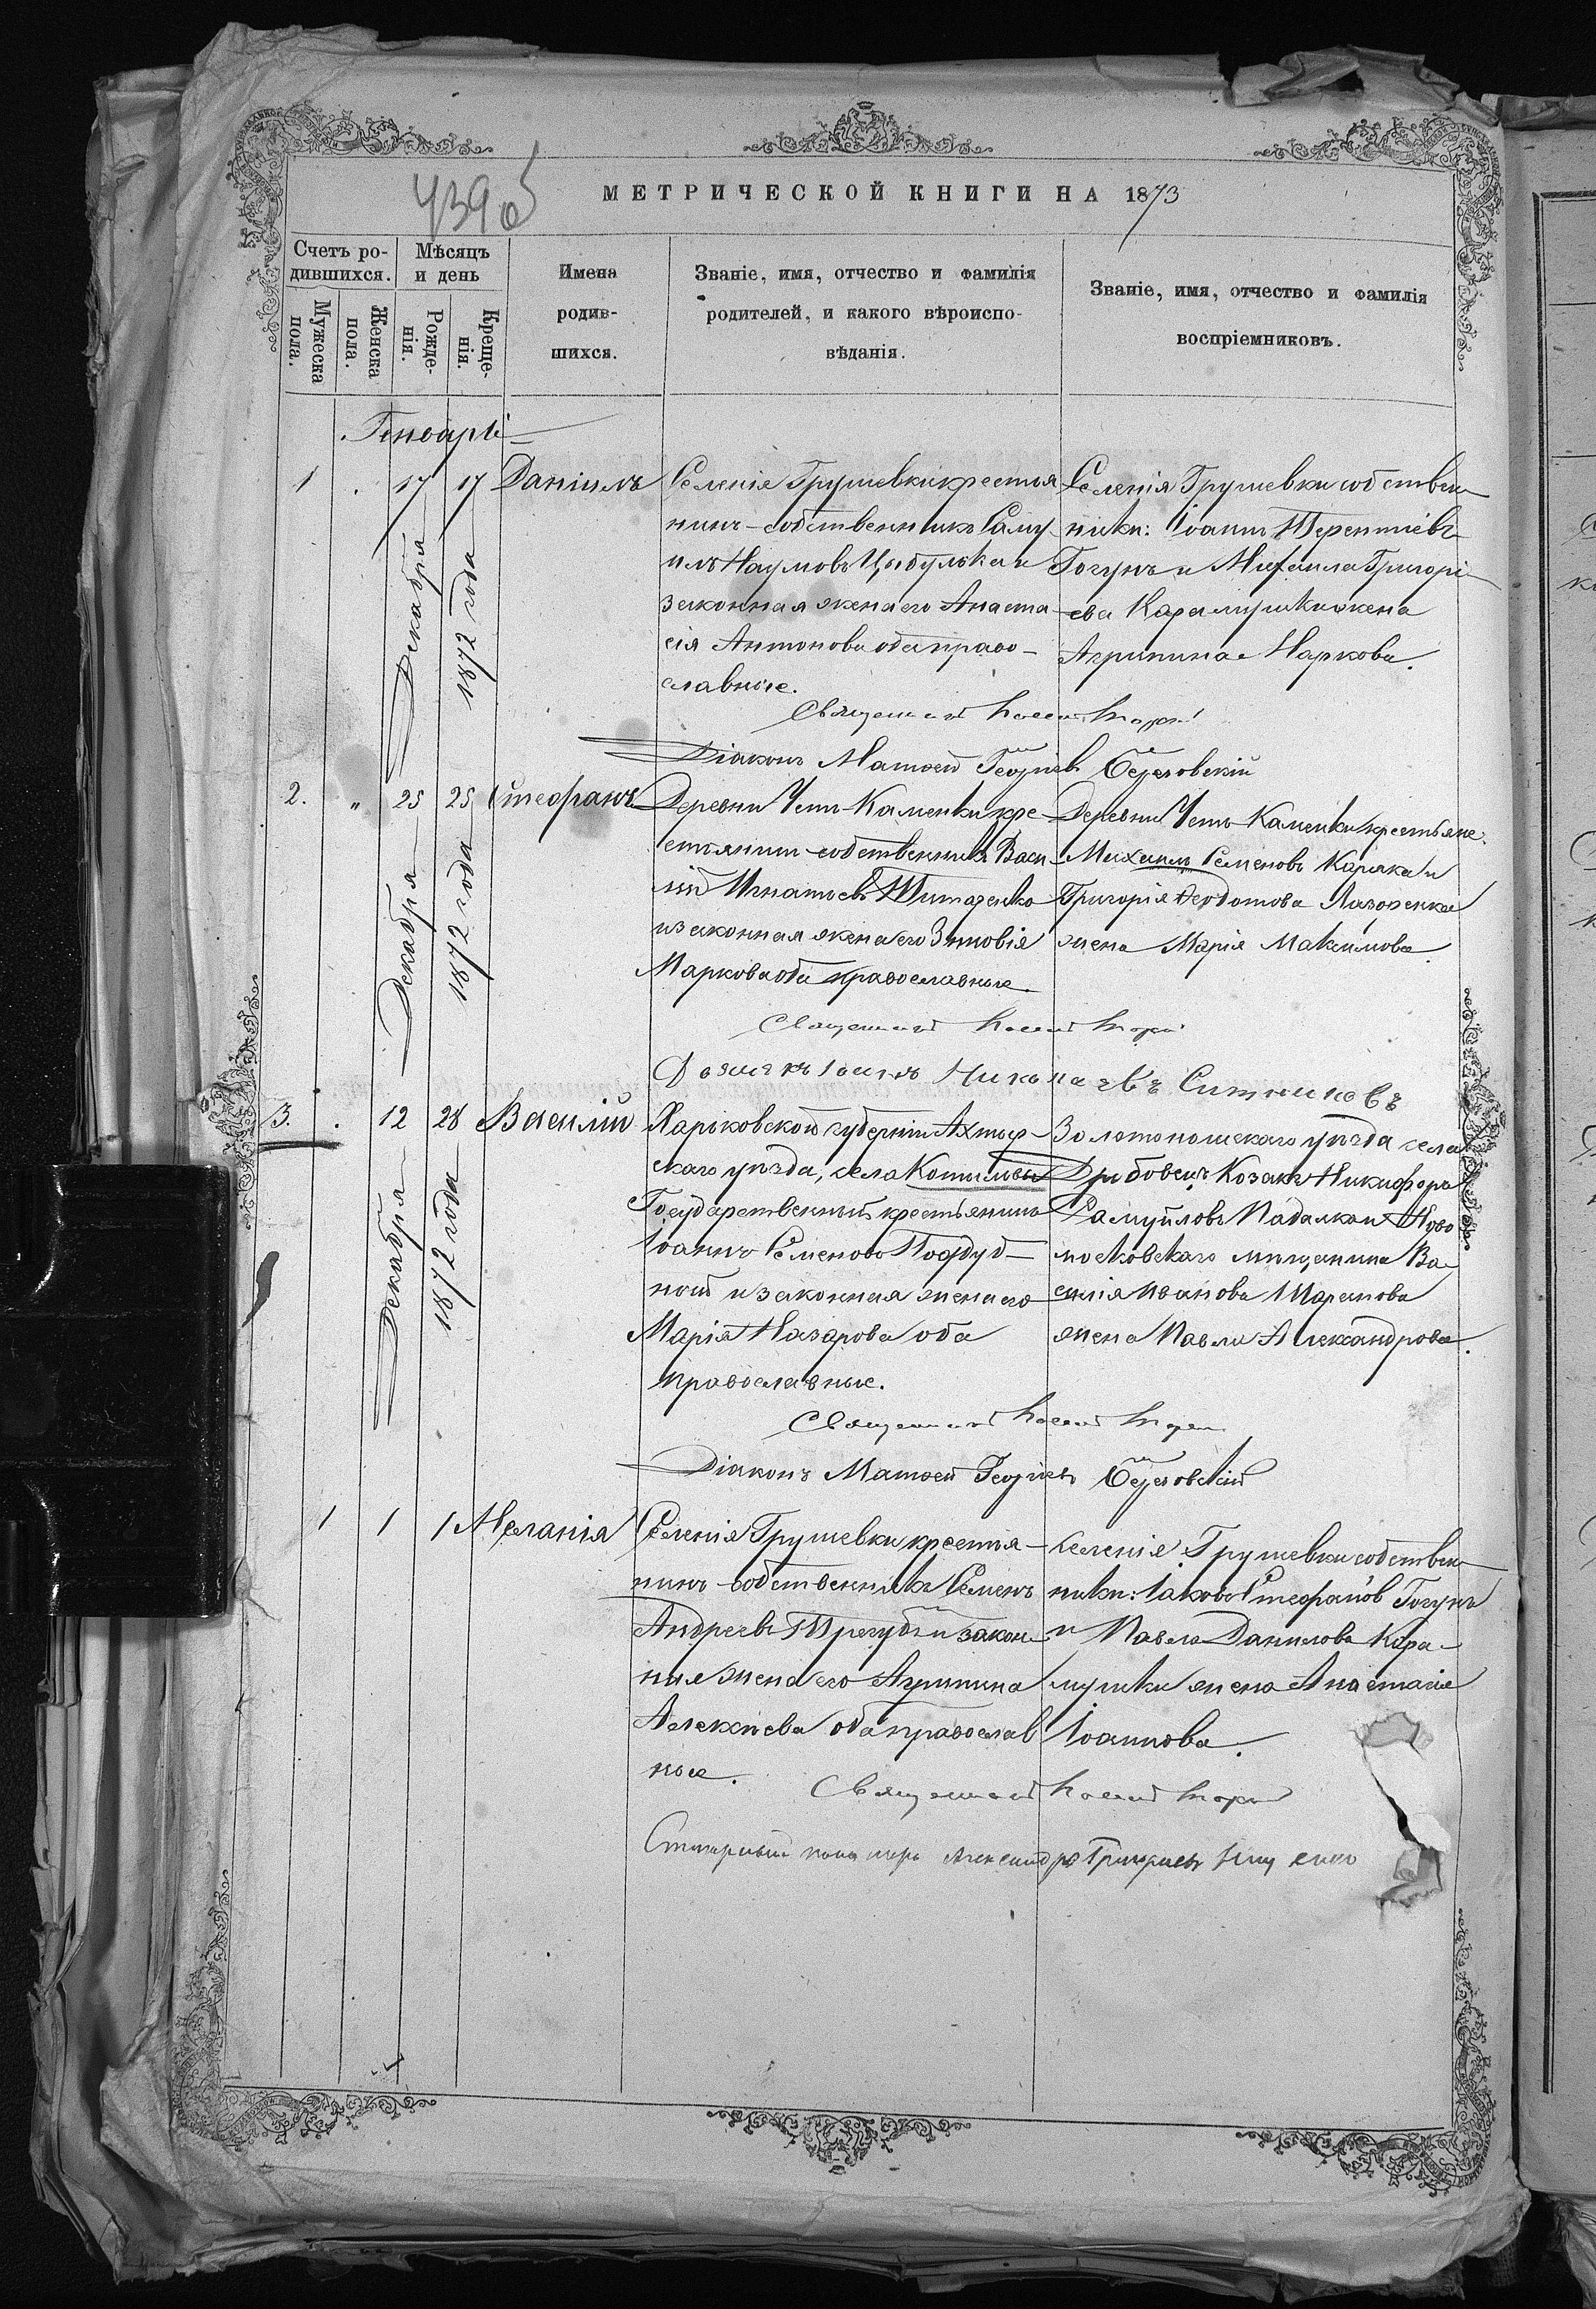 439 об
МЕТРИЧЕСКОЙ КНИГИ НА 1873
Счетъ ро-
дившихся.
Мѣсяцъ
и день
Мужеска
пола.
Женска
пола.
Рожде-
нія.
Креще-
нія.
Имена
родив-
шихся.
Званіе, имя, отчество и фамилія
родителей, и какого вѣроиспо-
вѣданія.
Званіе, имя, отчество и фамилія
воспріемниковъ.
Генварь
1 . 17 17 Даніилъ
Декабря
1872 года
Селенія Грушевки крестья
нинъ-собственникъ Саму
илъ Наумовъ Цыбулька и
законная жена его Анаста
сія Антонова оба право-
славные.
Селенія Грушевки собствен
ники: Іоаннъ Терентіевъ
Гогунъ и Михаила Григорі-
ева Карамушки жена
Агрипина Маркова.
Священникъ
Діаконъ Матѳей Георгіевъ Березовскій
2. " 25 25 Стефанъ
Декабря
1872 года
Деревни Усть-Каменки кре-
стьянинъ-собственникъ Васи
лій Игнатьевъ Титаренко
и законная жена его Зиновія
Маркова оба православные
Деревни Усть-Каменки крестьяне:
Михаилъ Семеновъ Карака и
Григорія Ѳеодотова Лазоренка
жена Марія Максимова.
Священникъ
Дьячекъ Іоаннъ Николаевъ Ситниковъ
3. . 12 28 Василій
Декабря
1872 года
Харьковской губерніи Ахтыр-
скаго уѣзда, села Котельвы
Государственный крестьянинъ
Іоаннъ Семеновъ Поддуб-
ный и законная жена его
Марія Назарова оба
православные.
Золотоношскаго уѣзда села
Дрибовецъ Козакъ Никифоръ
Самуйловъ Падалка и Ново
московскаго мѣщанина Ва
силія Иванова Шарапова
жена Павла Александрова.
Священникъ
Діаконъ Матѳей Георгіевъ Березовскій
1 1 1 Меланія
Селенія Грушевки крестья-
нинъ-собственникъ Семенъ
Андреевъ Трегубъ и закон-
ная жена его Агрипина
Алексѣева оба православ
ные.
Селенія Грушевки собствен
ники: Іаковъ Стефановъ Гогунъ
и Павла Данилова Кара-
мушки жена Анастасія
Іоаннова.
Священникъ
пономарь Александръ Григорьевъ